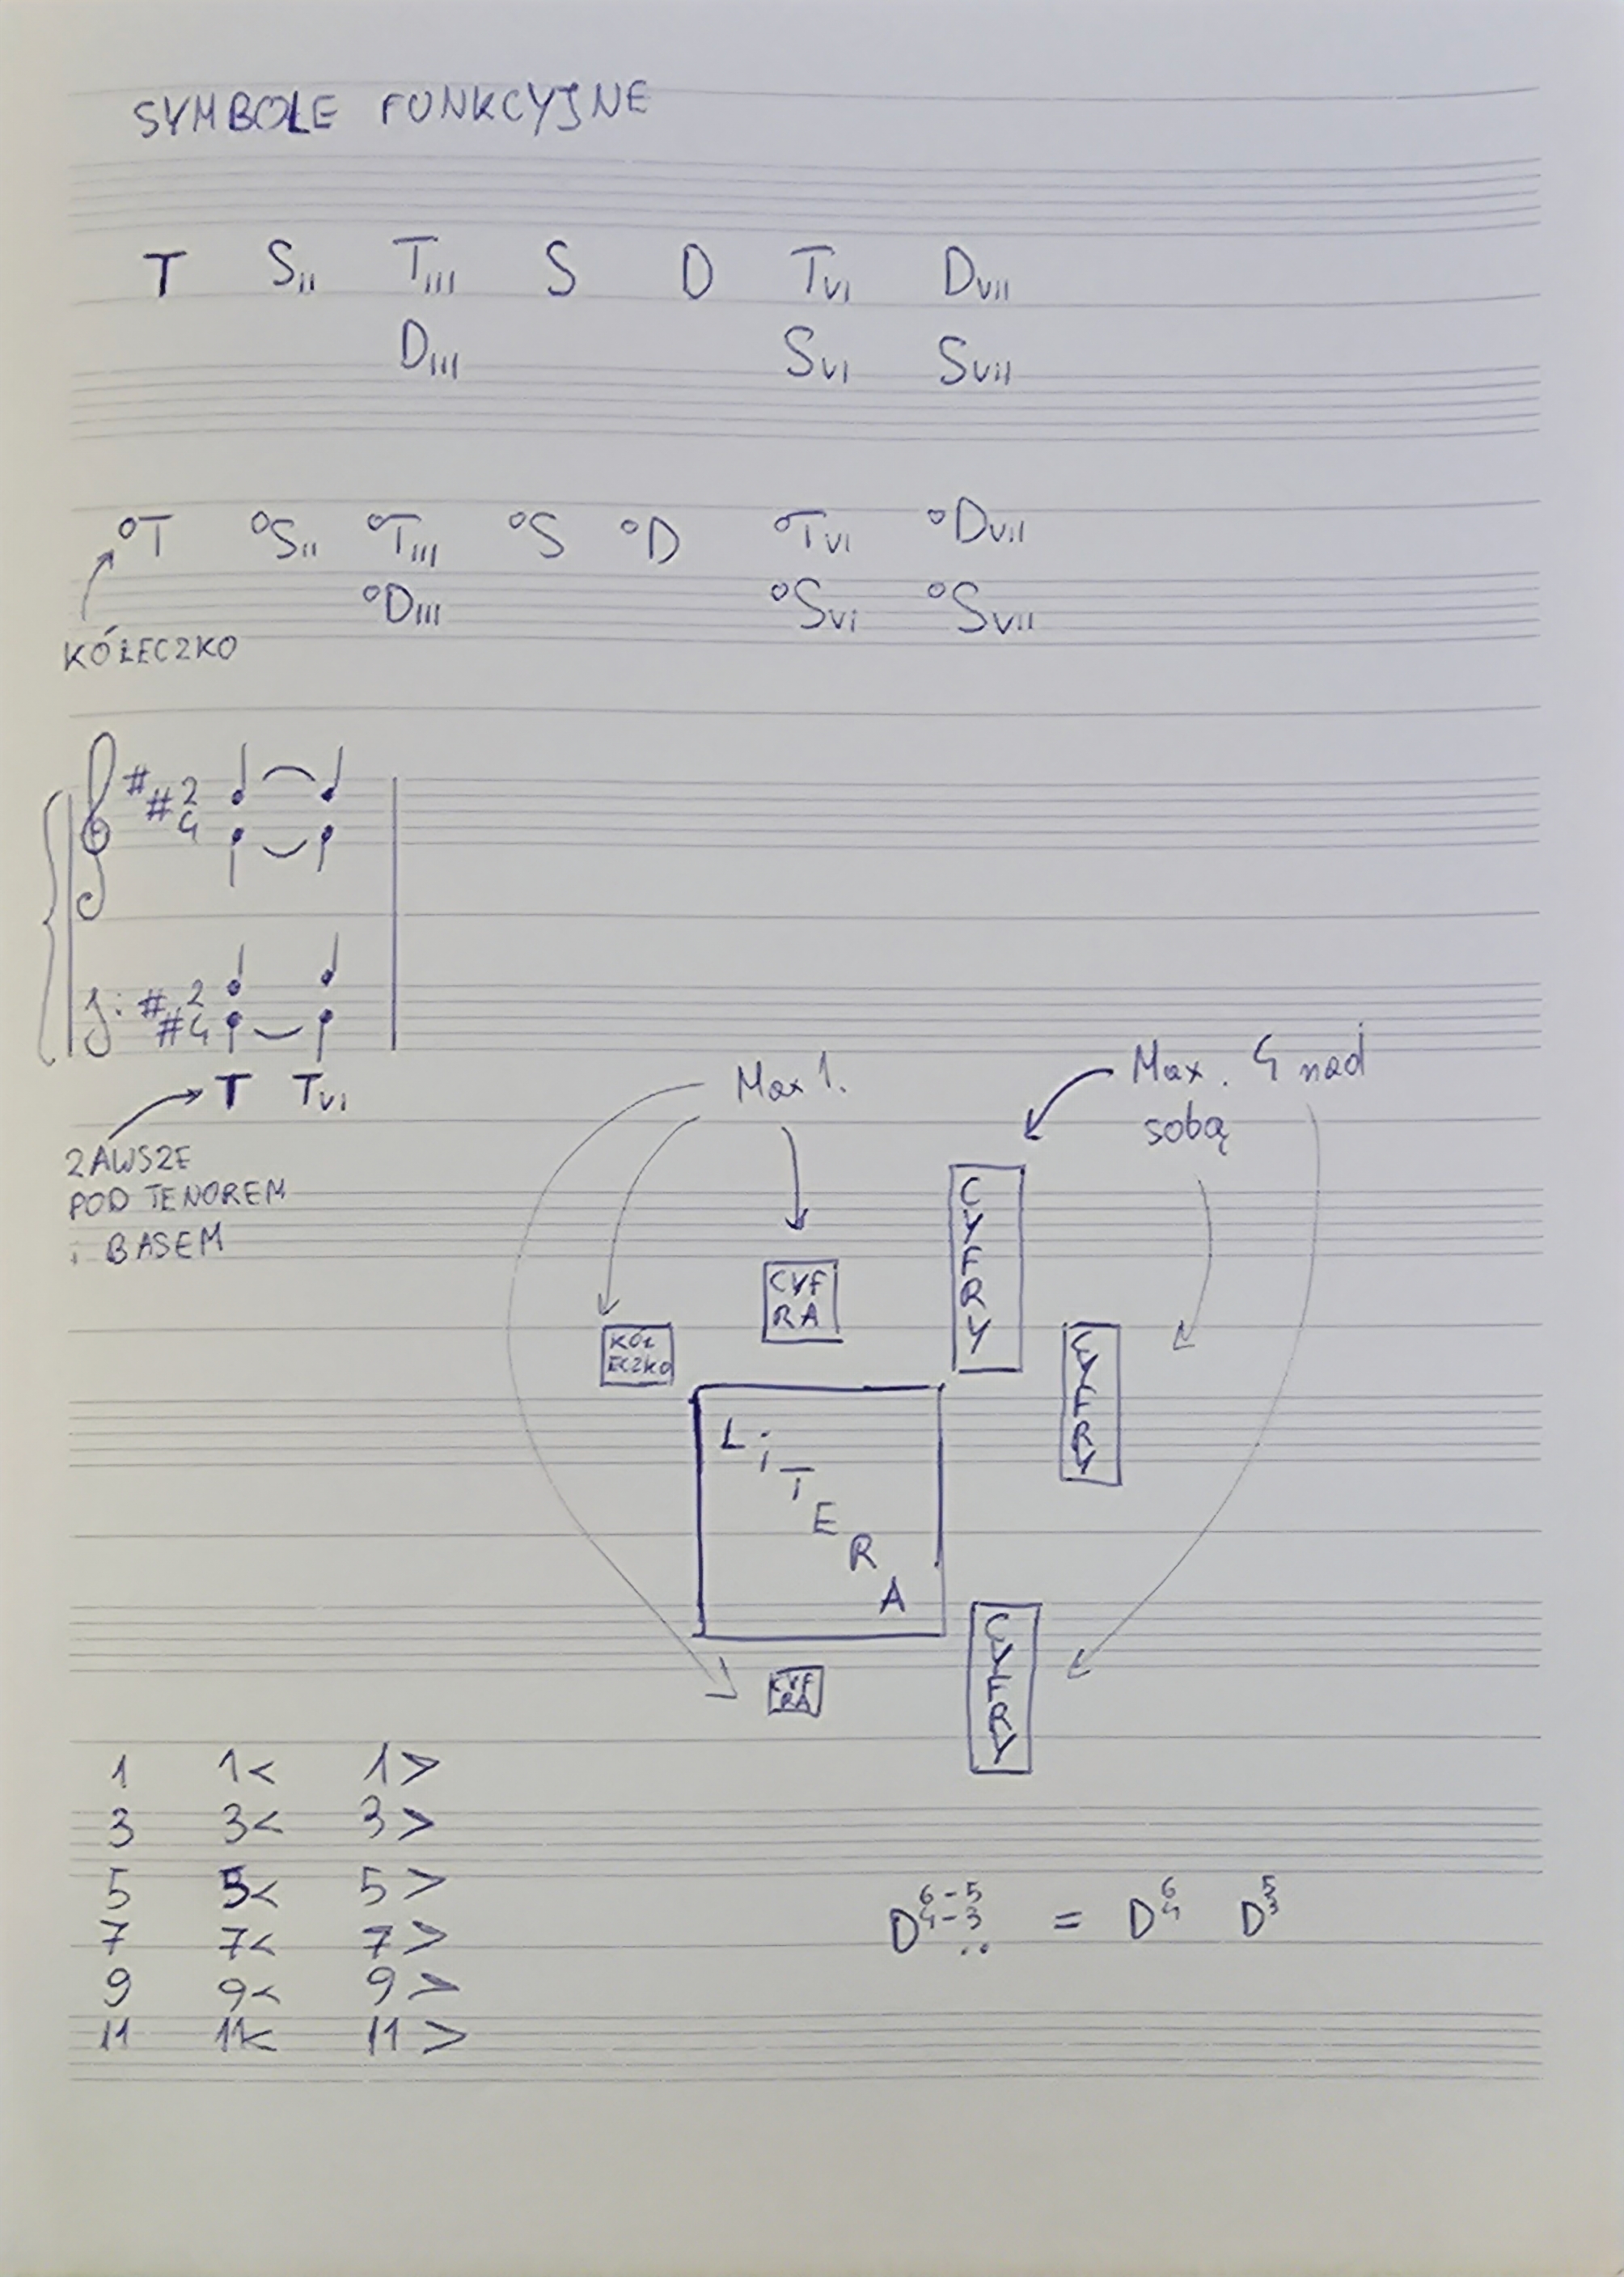 SYMBOLE FUNKCYJNE
T SII TIII S D TVI DVII
DIII SVI SVII
°T °SII °TIII °S °D °TVI °DVII
°DIII °SVI °SVII
KÓŁECZKO
2
4
2
4
T TVI
ZAWSZE
POD TENOREM
i BASEM
Max 1.
Max. 4 nad
sobą
CYFRY
CYF
RA
KÓŁ
ECZKO
CYFRY
LiTERA
CYFRY
CYF
RA
1 1< 1>
3 3< 3>
5 5< 5>
7 7< 7>
9 9< 9>
11 11< 11>
6-5 6 5
D4-3 = D4 D3